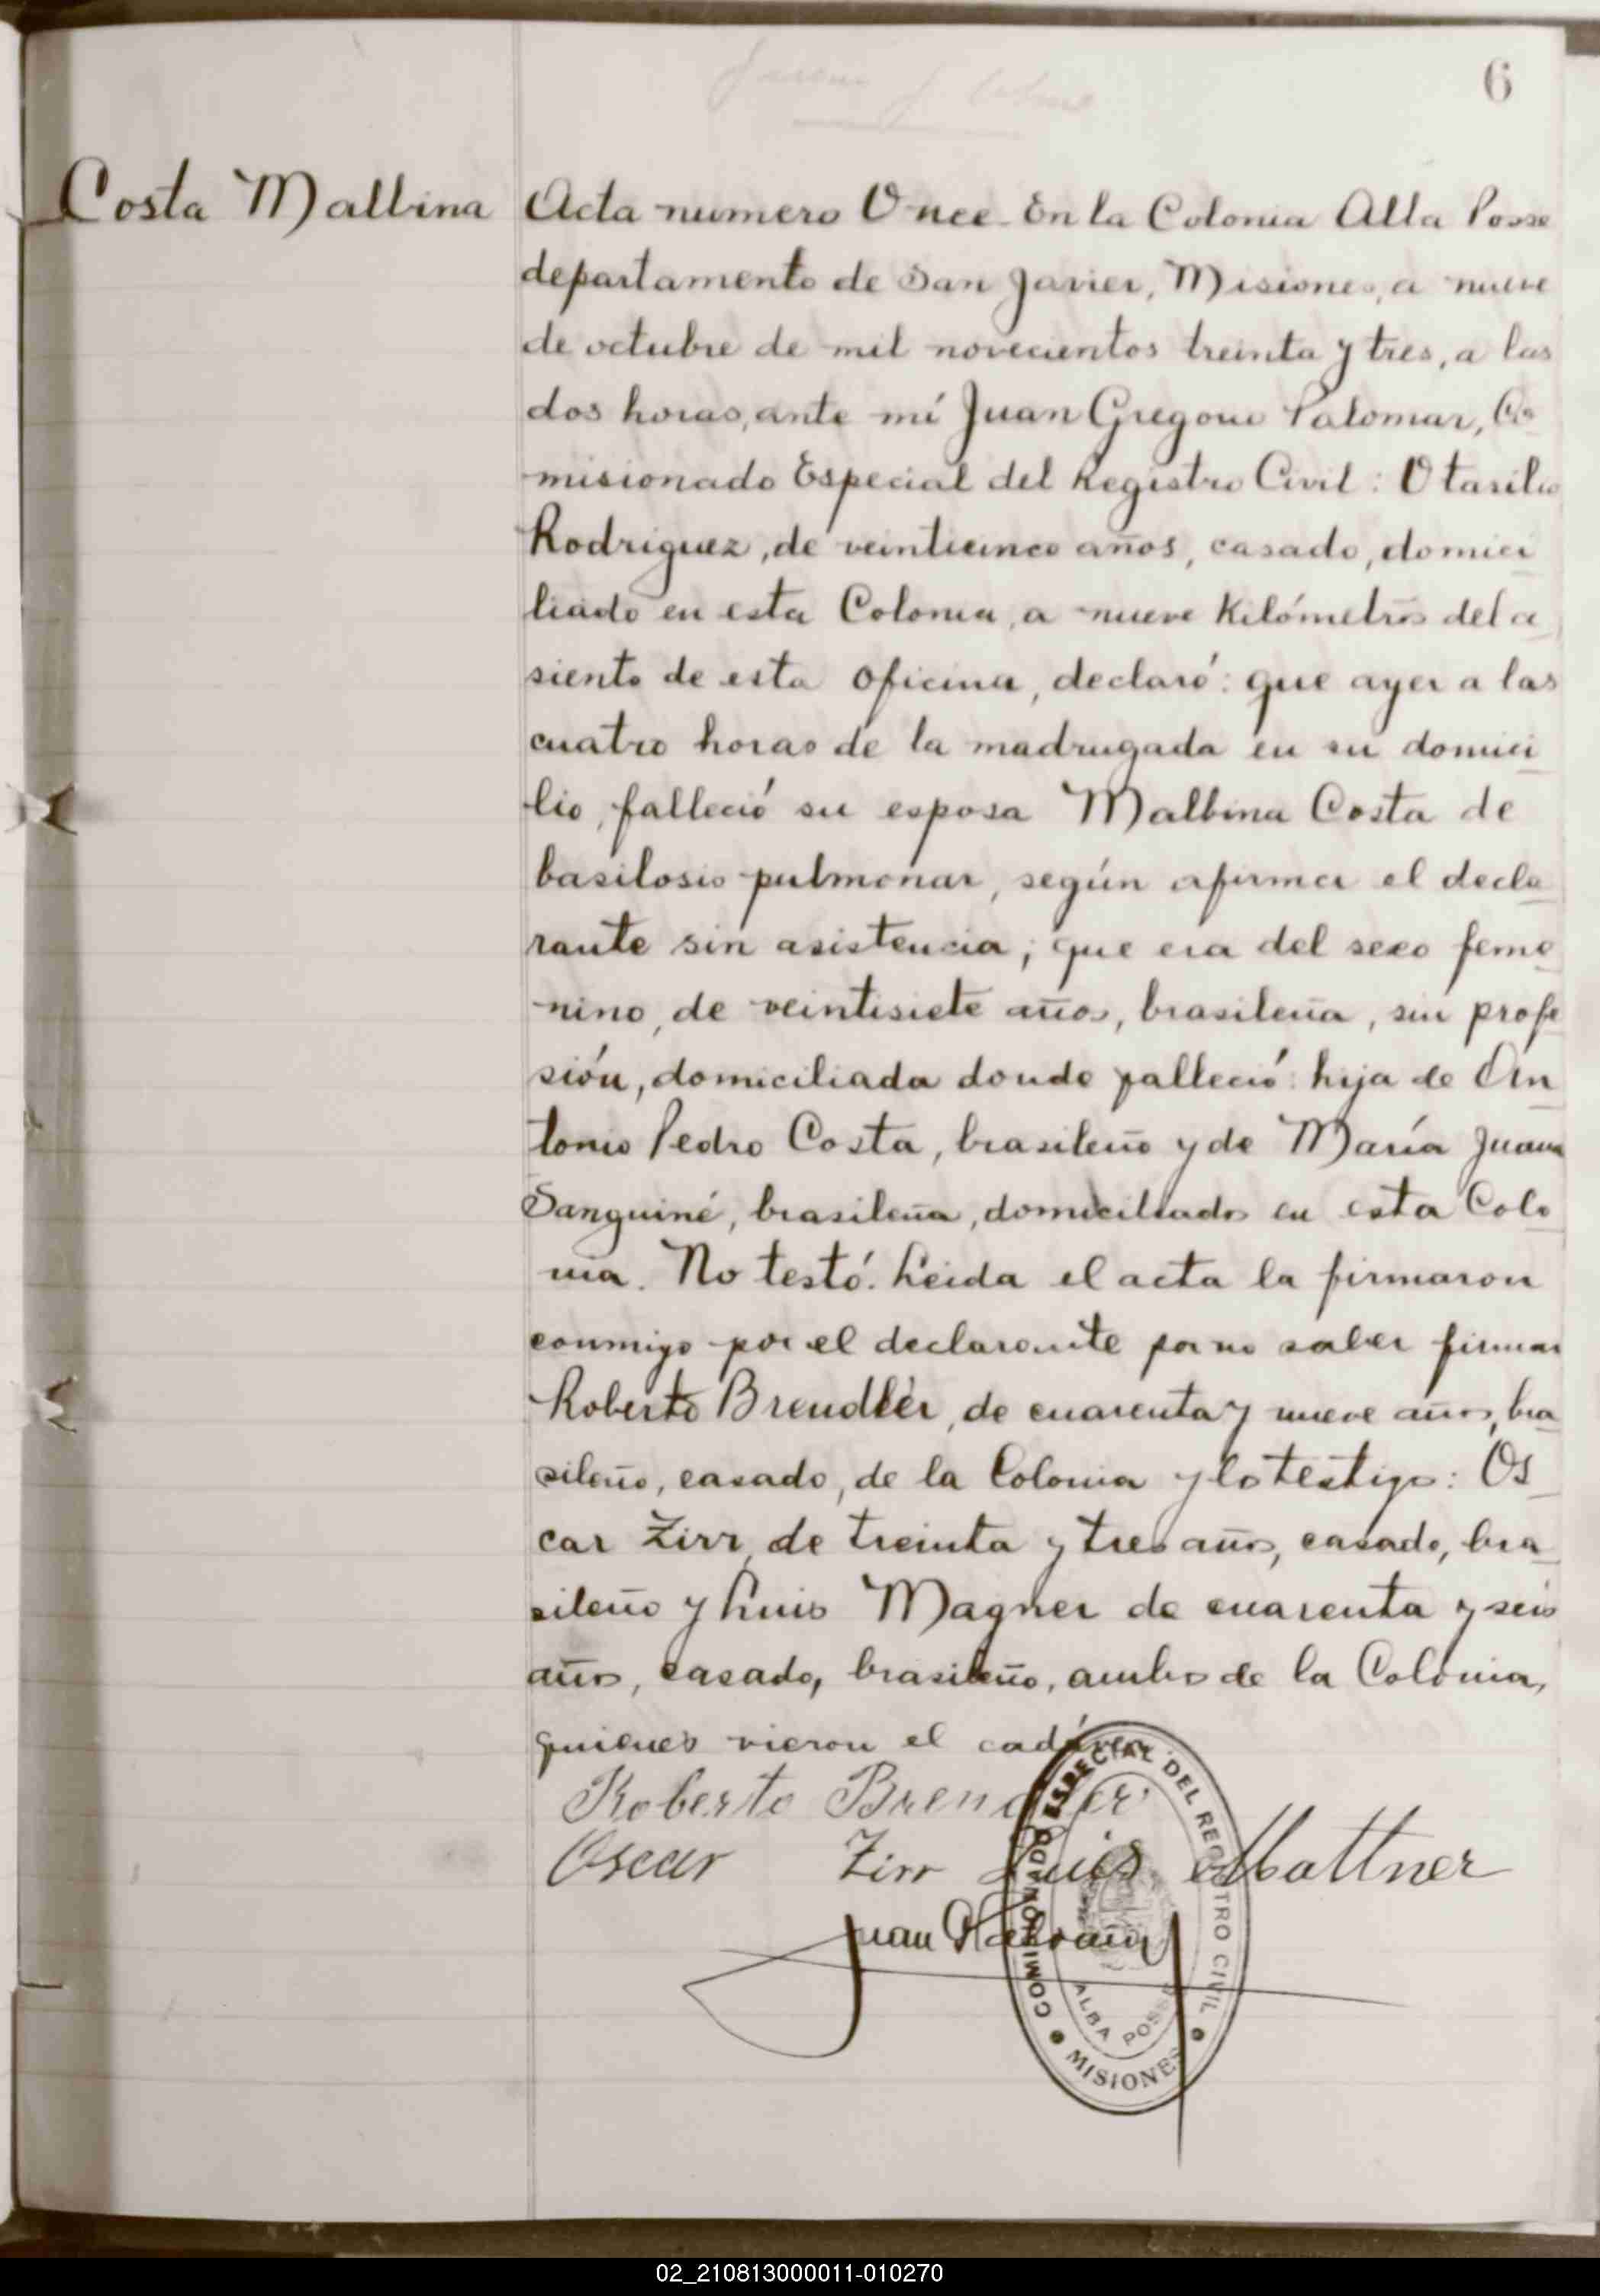 6
Costa Malbina
Acta numero Once. En la Colonia Alba Posse
departamento de San Javier, Misiones, a nueve
de octubre de mil novecientos treinta y tres, a las
dos horas, ante mí Juan Gregorio Palomar, Co
misionado Especial del Registro Civil: Otasilio
Rodriguez, de veinticinco años, casado, domici
liado en esta Colonia, a nueve Kilómetros del a
siento de esta oficina, declaró: que ayer a las
cuatro horas de la madrugada en su domici
lio, falleció su esposa Malbina Costa de
basilosis pulmonar, según afirma el decla
rante sin asistencia; que era del sexo feme
nino, de veintisiete años, brasileña, sin profe
sión, domiciliada donde falleció: hija de An
tonio Pedro Costa, brasileño y de María Juana
Sanguiné, brasileña, domiciliados en esta Colo
nia. No testó. Leida el acta la firmaron
conmigo por el declarante por no saber firmar
Roberto Brendler, de cuarenta y nueve años, bra
sileño, casado, de la Colonia y los testigos: Os
car Zirr, de treinta y tres años, casado, bra
sileño y Luis Magner de cuarenta y seis
años, casado, brasileño, ambos de la Colonia,
quienes vieron el cadáver.
Roberto Brendler
Oscar Zirr Luis Mattner
Juan
COMISIONADO ESPECIAL DEL REGISTRO CIVIL
ALBA POSSE
MISIONES
02_210813000011-010270